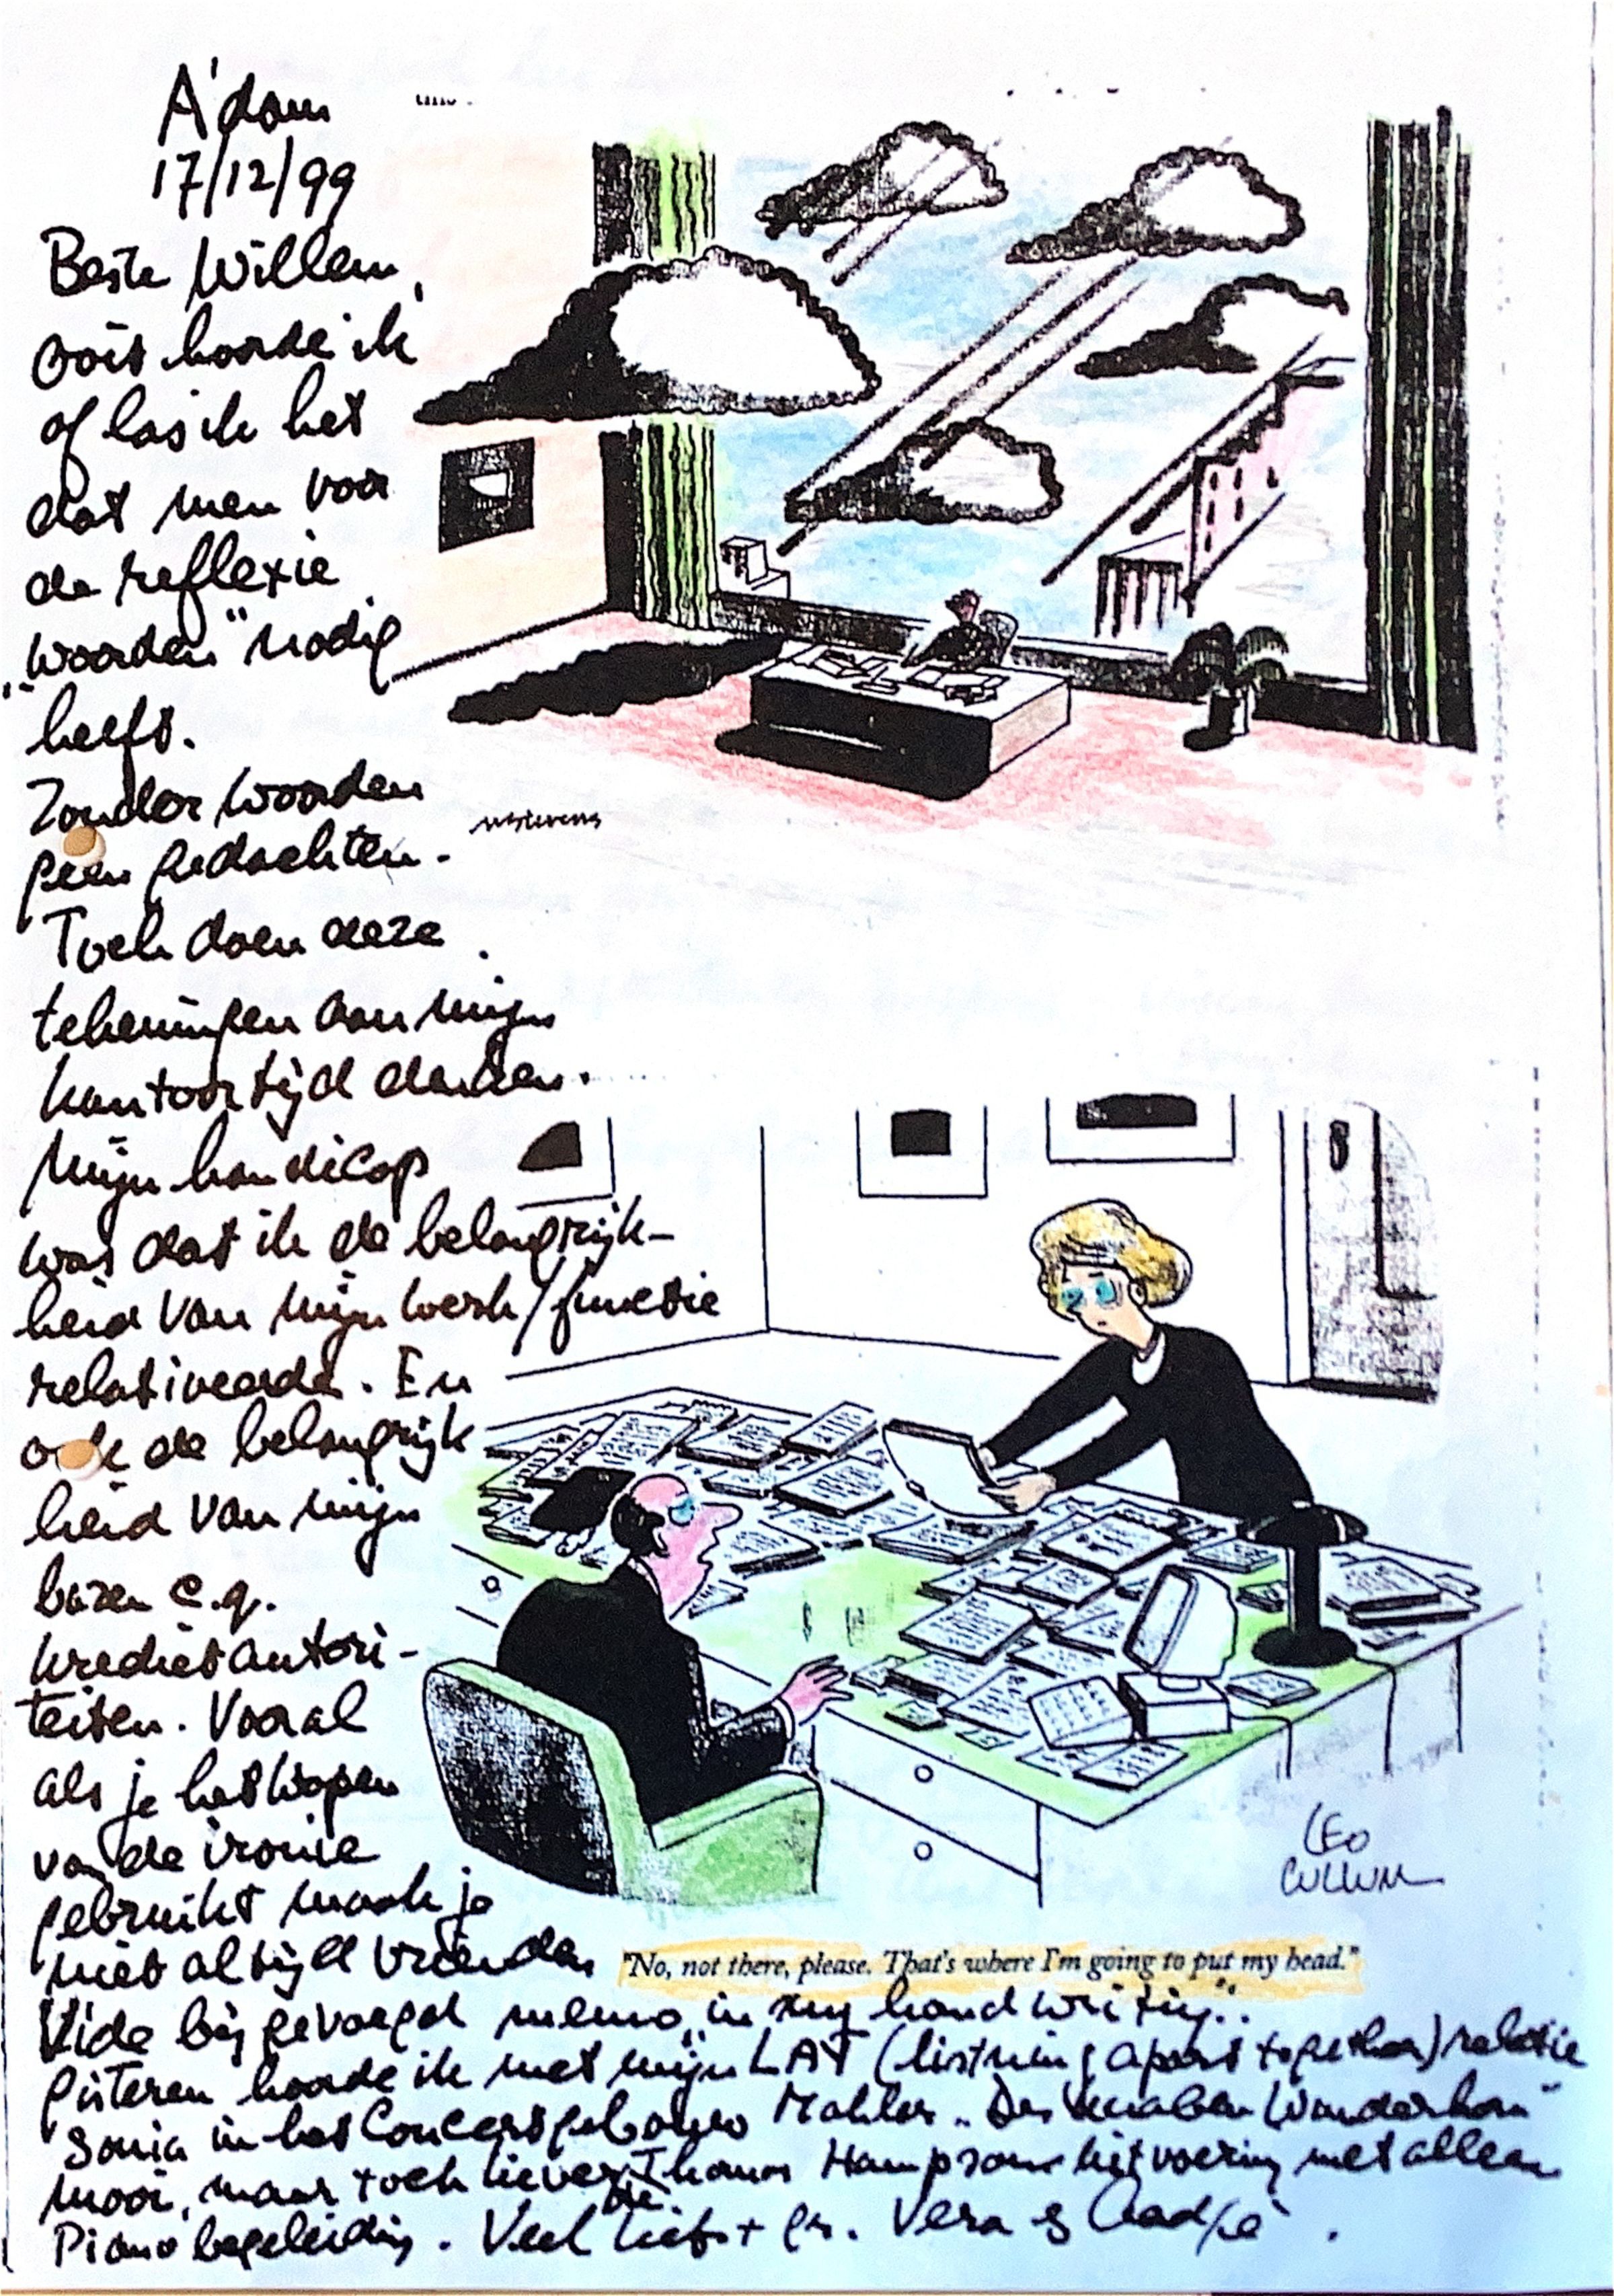 A'dam
17/12/99
Beste Willem,
Ooit hoorde ik
of las ik het
dat men voor
de reflexie
"woorden" nodig
heeft.
Zonder woorden
geen gedachten.
Toch doen deze
tekeningen aan mijn
kantoortijd denken.
Mijn handicap
was dat ik de belangrijk-
heid van mijn werk/functie
relativeerde. En
ook de belangrijk
heid van mijn
bazen c.q.
kredietautori-
teiten. Vooral
als je het wapen
van de ironie
gebruikt maak je
niet altijd vrienden
Vide bijgevoegd memo "in my handwriting".
Gisteren hoorde ik met mijn LAT (listning apart together) relatie
Sonia in het Concertgebouw Mahler "Des Knaben Wunderhorn"
mooi, maar toch liever die Thomas Hampson uitvoering met alleen
Piano begeleiding. Veel liefs + gr. Vera & Aadje
M Stevens
LEO
CULLUM
"No, not there, please. That's where I'm going to put my head."